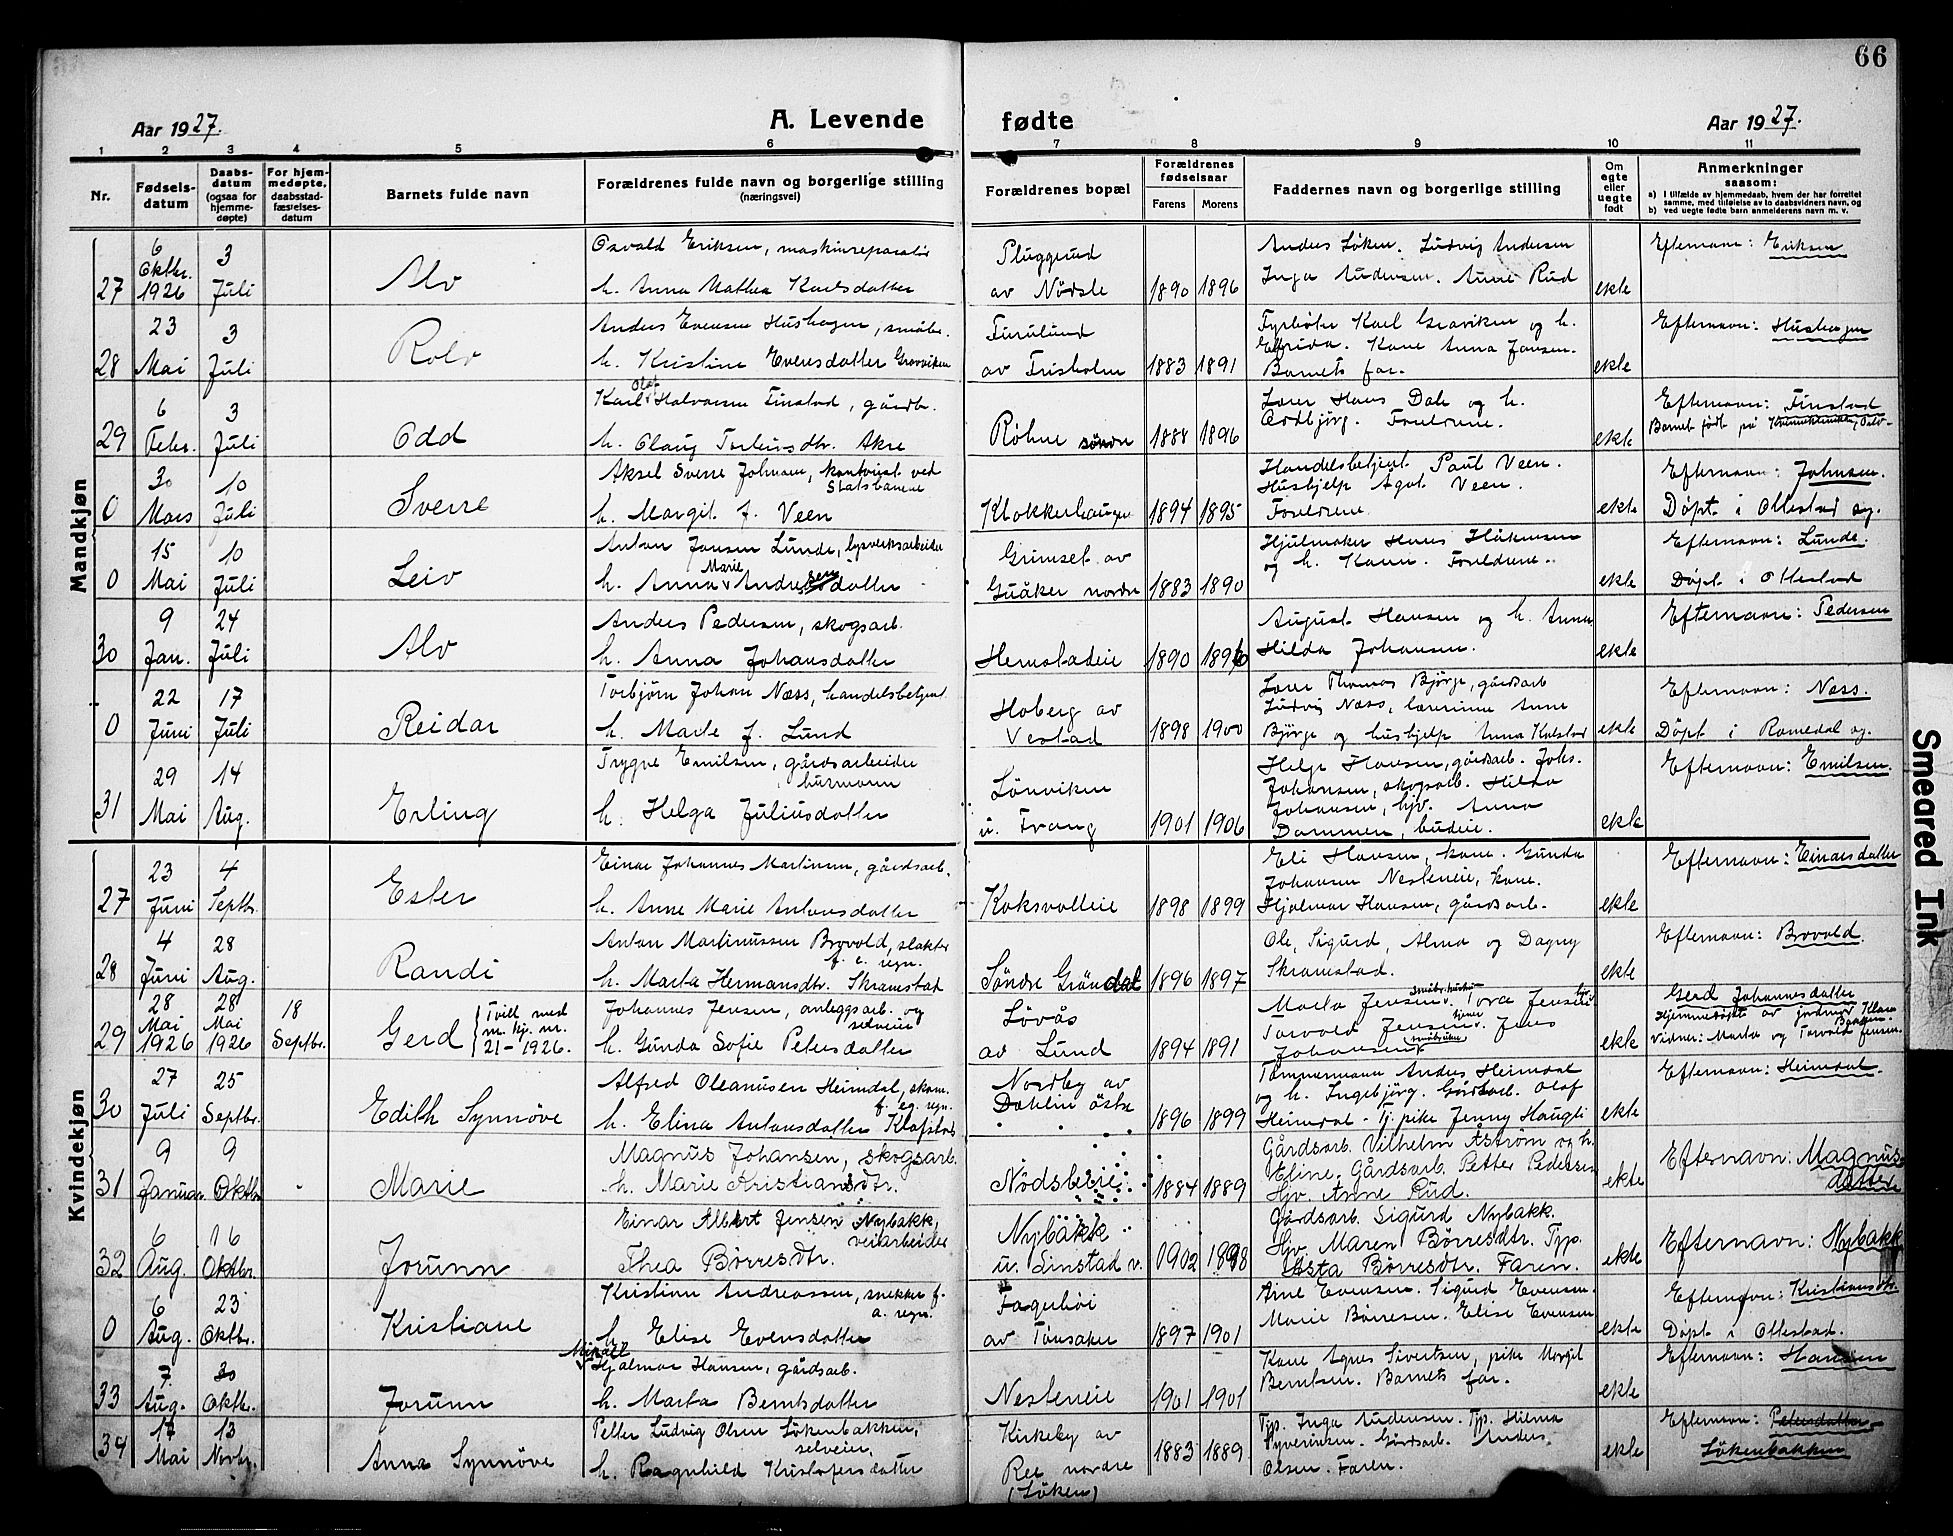 66
Aar 1927.
A. Levende
fødte
Aar 1927.
1 2 3 4 5 6 7 8 9 10 11
Nr.
Fødsels-
datum
Daabs-
datum
(ogsaa for
hjemme-
døpte)
For hjem-
medøpte,
daabsstad-
fæstelses-
datum
Barnets fulde navn
Forældrenes fulde navn og borgerlige stilling
(næringsvei)
Forældrenes bopæl
Forældrenes
fødselsaar
Farens Morens
Faddernes navn og borgerlige stilling
Om
egte
eller
uegte
født
Anmerkninger
saasom:
a) I tilfælde av hjemmedaab, hvem der har forrettet
samme, med tilføielse av to daabsvidners navn, og
b) ved uegte fødte barn anmelderens navn m. v.
Mandkjøn
27 6 Oktbr. 1926 3 Juli Alv
Osvald Eriksen, maskinreparatør
h. Anna Mathea Karlsdatter
Pluggrud
av Nødsle 1890 1896
Anders Løken. Ludvig Andersen
Inga Andersen. Anne Rud
ekte Efternavn: Eriksen
28 23 Mai 3 Juli Rolv
Anders Evensen Hushagen, småbr.
h. Kristine Evensdatter Gravviken
Furulund
av Frisholm 1883 1891
Fyrbøter Karl Graviken og h.
Elfrida. Kone Anna Jansen.
Barnets far.
ekte Efternavn: Hushagen
29 6 Febr. 3 Juli Odd
Karl Olaf Halvorsen Finstad, gårdbr.
h. Olaug Torleivsdtr. Akre
Røhne søndre 1884 1896
Lærer Hans Dale og h.
Ordbjørg. Foreldrene.
ekte Efternavn: Finstad
Barnet født på Kvinneklinikken, Oslo-
0 30 Mars 10 Juli Sverre
Aksel Sverre Johnsen, kontorist ved
Statsbanene
h. Margit f. Veen
Klokkerhaugen 1894 1895
Handelsbetjent Paul Veen.
Hushjelp Agot Veen.
Foreldrene.
ekte Efternavn: Johnsen.
Døpt i Ottestad sg.
0 15 Mai 10 Juli Leiv
Anton Jansen Lunde, lysverksarbeider
h. Anna Marie Andreasdatter
Grimset av
Guåker nordre 1883 1890
Hjulmaker Hans Håkensen
og h. Karen. Foreldrene.
ekte Efternavn: Lunde.
Døpt i Ottestad
30 9 Jan. 24 Juli Alv
Anders Pedersen, skogsarb.
h. Anna Johansdatter
Hemstadeie 1890 1896
August Hansen og h. Anna
Hilda Johansen.
ekte Efternavn: Pedersen
0 22 Juni 17 Juli Reidar
Torbjørn Johan Næss, handelsbetjent
h. Marte f. Lund
Hoberg av
Vestad 1898 1900
Lærer Thomas Bjørge, gårdsarb
Ludvig Næss, lærerinne Anne
Bjørge og hushjelp Anna Kolstad
ekte Efternavn: Næss.
Døpt i Romedal sg.
31 29 Mai 14 Aug. Erling
Trygve Emilsen, gårdsarbeider
husmann
h. Helga Juliusdatter
Lønviken
u. Frang 1901 1906
Helge Hansen, gårdsarb. Johs.
Johansen, skogsarb. Hilda
Johansen, hjv. Anna
Dammen, budeie.
ekte Efternavn: Emilsen.
Kvindekjøn
27 23 Juni 4 Septbr. Ester
Einar Johannes Martinsen, gårdsarb.
h. Anne Marie Antonsdatter
Koksvolleie 1898 1899
Eli Hansen, kone. Gunda
Johansen Nesteneie, kone.
Hjalmar Hansen, gårdsarb.
ekte Efternavn: Einarsdatter
28 4 Juni 28 Aug. Randi
Anton Martinussen Brovold, slakter
f. e. regn.
h. Marta Hermansdtr. Skramstad
Søndre Gröndal 1896 1897
Ole, Sigurd, Alma og Dagny
Skramstad.
ekte Efternavn: Brovold.
29 28 Mai 1926 28 Mai 1926 18 Septbr. Gerd
Tvill. med
m. kj. nr.
21 - 1926.
Johannes Jensen, anleggsarb. og
selveier
h. Gunda Sofie Petersdatter
Løvås
av Lund 1894 1891
Marta Jensen småbr.hustru. Tora Jensen
Torvald Jensen. Jens
Johansen småbruker
ekte Gerd Johannesdatter
Hjemmedøpt av jordmor Klara
Baagen.
Vidner: Marta og Torvald Jensen.
30 27 Juli 25 Septbr. Edith Synnøve
Alfred Oleanusen Heimdal, skom.
f. eg. regn.
h. Elina Antonsdatter Klopstad
Nordby av
Dahlin østre 1896 1899
Tømmermann Anders Heimdal
og h. Ingebjørg. Gårdsarb. Olaf
Heimdal - Tj.pike Jenny Haugli
ekte Efternavn: Heimdal.
31 9 Januar 9 Oktbr Marie
Magnus Johansen, skogsarb.
h. Marie Kristiansdtr.
Nødsleeie 1884 1889
Gårdsarb. Vilhelm Åstrøm og h.
Eline. Gårdsarb. Petter Pedersen
Hjv. Anne Rud.
ekte Efternavn: Magnus-
datter
32 6 Aug. 16 Oktbr. Jorunn
Einar Albert Jensen Nybakk,
veiarbeider
Thea Børresdtr.
Nybakk
u. Linstad v. 1902 1898
Gårdsarb. Sigurd Nybakk.
Hjv. Maren Børresdtr. Tjp.
Asta Børresdtr. Faren.
ekte Efternavn: Nybakk
0 6 Aug. 23 Oktbr. Kristiane
Kristian Andreassen, snekker f.
a. regn.
h. Elise Evensdatter
Fagerhøi
av Tønsaker 1897 1901
Arne Evensen. Sigurd Evensen.
Marie Børresen. Elise Evensen
ekte Efternavn: Kristiansdtr.
Døpt i Ottestad.
33 7 Aug. 30 Oktbr. Jorunn
Mikael
Hjalmar Hansen, gårdsarb.
h. Marta Berntsdatter
Nesteneie 1901 1901
Kone Agnes Sivertsen, pike Margit
Berntsen. Barnets far.
ekte Efternavn: Hansen
34 17 Mai 13 Novbr. Anna Synnøve
Petter Ludvig Olsen Løkenbakken,
selveier,
h. Ragnhild Kristofersdatter
Kirkeby av
Ree nordre
(Løken) 1883 1889
Tjp. Inga Andersen. Tjp. Hilma
Tyverinken. Gårdsarb. Anders
Olsen. Faren.
ekte Efternavn: Petersdatter
Løkenbakken
Smeared Ink